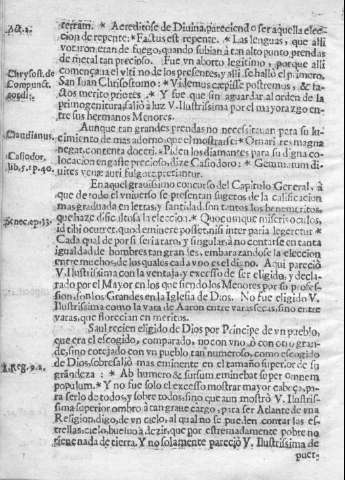 Act. 2.
terram. * Acreditòse de Divina, pareciendo ser aquella eleccion
de repente. * Factus est repente. * Las lenguas, que alli
votaron, eran de fuego, quando subian à tan alto punto, prendas
de metal tan precioso. Fue un aborto legitimo, porque alli
començava el vltimo de los presentes, y alli se hallò el primero.
Chrysost. de
Compunct.
cordis.
San Juan Chrisostomo: * Videmus cœpisse postremus, & factos
merito priores. * Y fue que sin aguardar al orden de la
primogenitura, saliò à luz V. Ilustrissima por el mayorazgo entre
sus hermanos Menores.
Aunque tan grandes prendas no necessitavan para su lucimiento
Claudianus.
de mas adorno, que el mostrarse: * Ornari res magna
negat, contenta doceri. * Piden los diamantes para su digna colocacion
Casiodor.
lib. 5. ep. 40.
engaste precioso, dize Casiodoro: * Gemmarum divites
venæ auri fulgore
En aquel gravissimo concurso del Capitulo General, à
que de todo el vniverso se presentan sugetos de la calificacion
mas graduada en letras, y santidad, son tantos los benemeritos,
Senec. ep. 33.
que haze dificultosa la eleccion. * Quocumque miseris oculos,
id tibi ocurret, quod eminere posset, nisi inter paria legeretur. *
Cada qual de por si seria raro, y singular, à no contarse en tanta
igualdad de hombres tan grandes, embarazandose la eleccion
entre muchos, de los quales cada vno es el digno. Aqui pareciò
V. Ilustrissima con la ventaja, y excesso de ser eligido, y declarado
por el Mayor en los que siendo los Menores por su profession,
son los Grandes en la Iglesia de Dios. No fue eligido V.
Ilustrissima como la vara de Aaron entre varas secas, sino entre
varas, que florecian en meritos.
Saul recien eligido de Dios por Principe de vn pueblo,
que era el escogido, comparado, no con vno, ò con otro grande,
sino cotejado con vn pueblo tan numeroso, como escogido
de Dios, sobresaliò mas eminente en el tamaño superior de su
1. Reg. 9. 2.
grandeza: * Ab humero & sursum eminebat super omnem
populum. * Y no fue solo el excesso mostrar mayor cabeça, para
serlo de todos, y sobre todos, sino que aun mostrò V. Ilustrissima
superior ombro à tan grave cargo, para ser Atlante de vna
Religion, digo, de vn cielo, al qual no se pueden contar las estrellas;
cielo, buelvo à dezir, que por estremadamente pobre no
tiene nada de tierra. Y no solamente pareciò V. Ilustrissima de
puer-